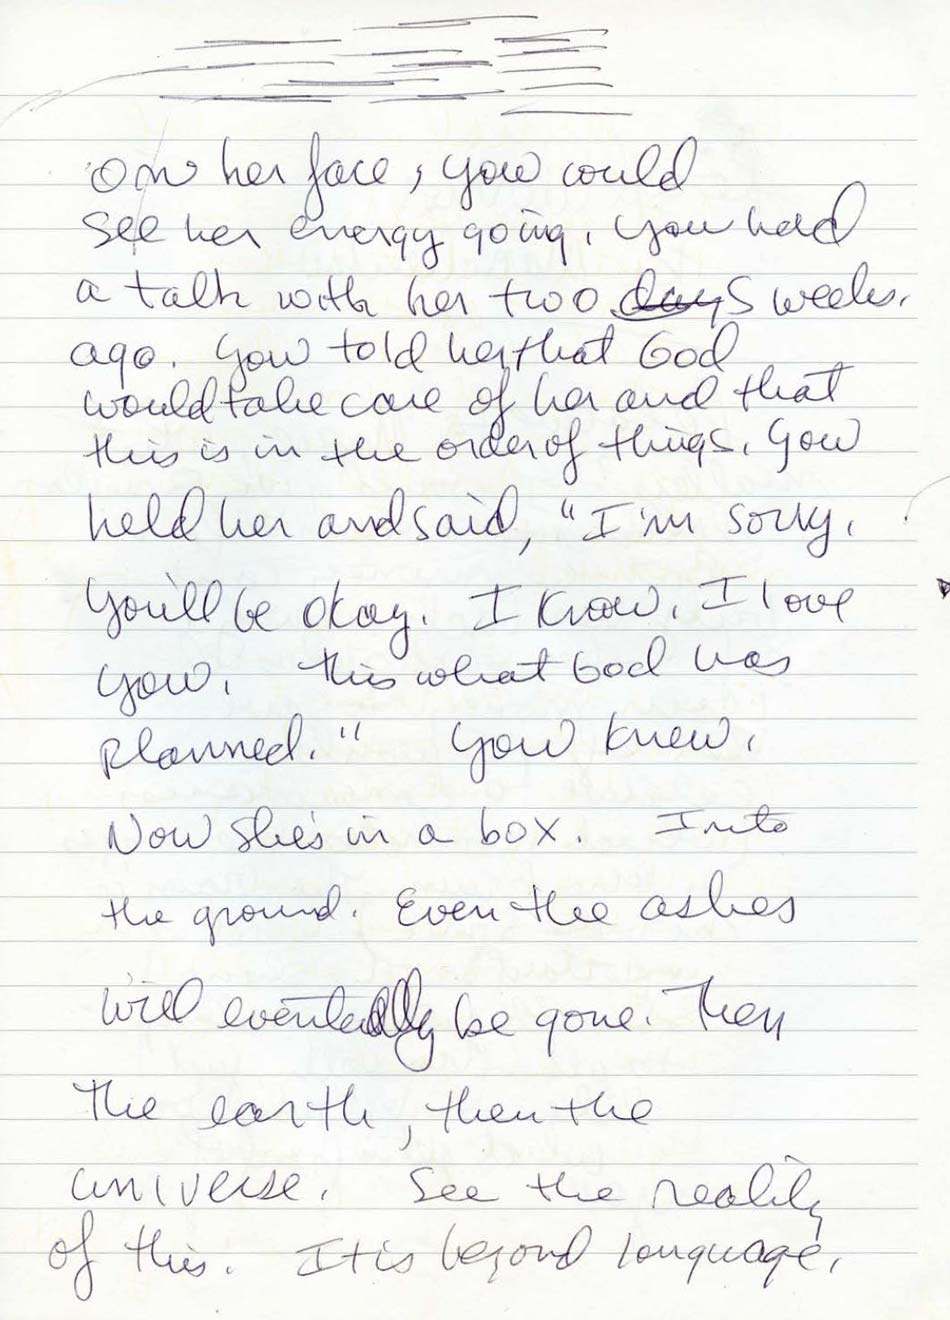 on her face, you could
see her energy going. You had
a talk with her two days weeks.
ago. You told her that God
would take care of her and that
this is in the order of things. You
held her and said, "I'm sorry.
You'll be okay. I know. I love
you. This what God has
planned." You knew.
Now she's in a box. Into
the ground. Even the ashes
will eventually be gone. Then
the earth, then the
universe. See the reality
of this. It is beyond language.